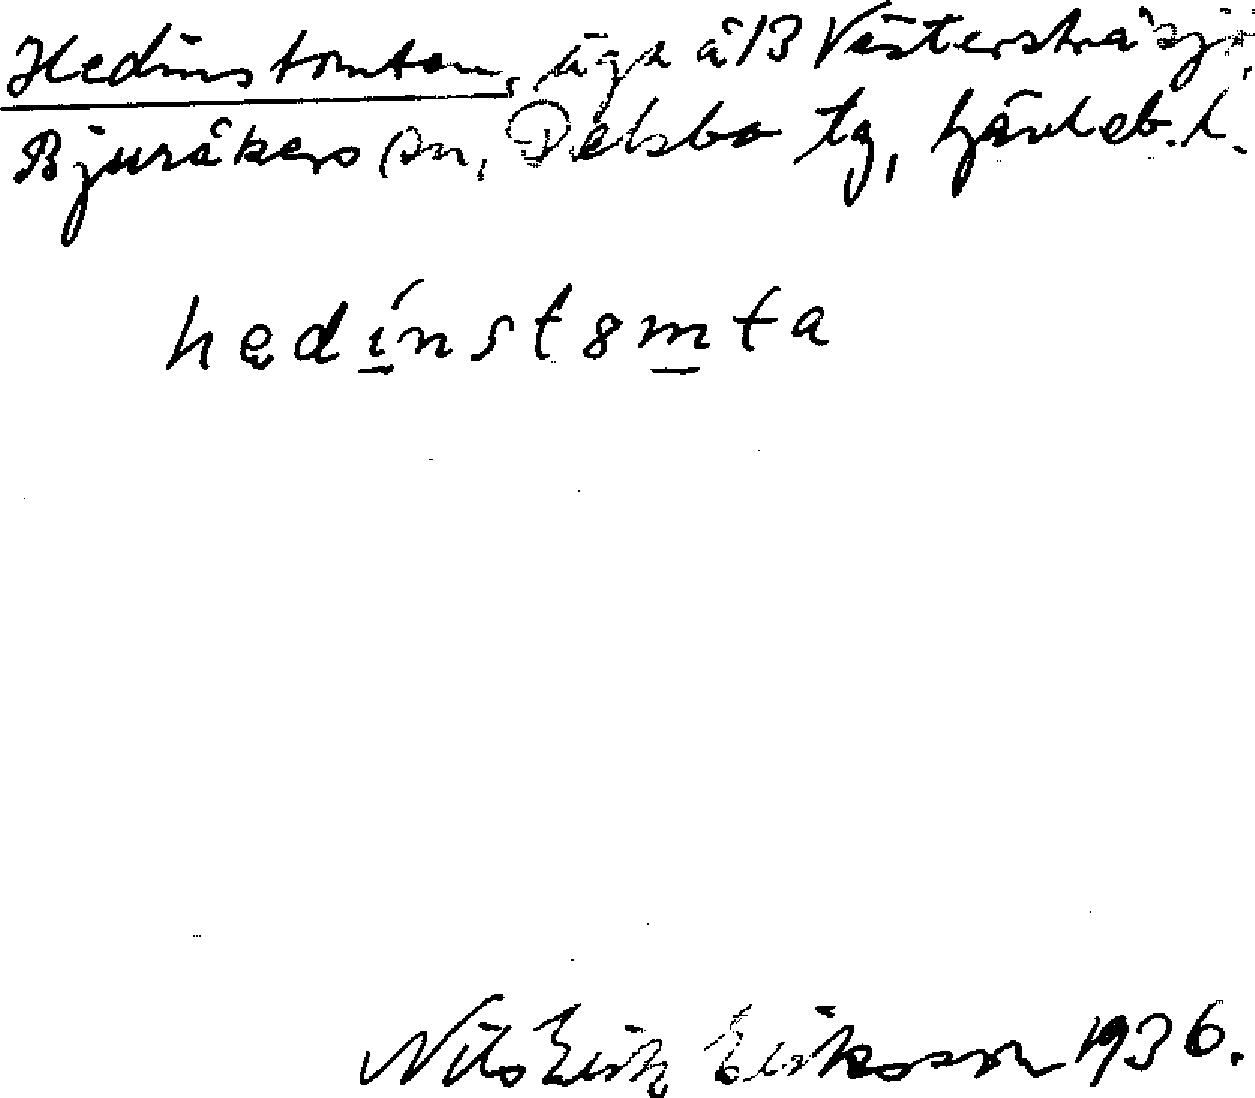 Hedinstomten, äga å 13 Västerstråsjö,
Bjuråkers sn, Delsbo tg, Gävleb. l.
hędínst8mta
Nils Erik Eriksson 1936.